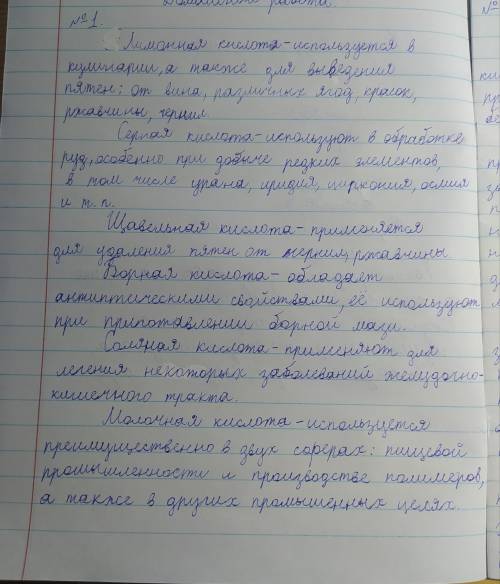 Домашняя работа.
№1.
Лимонная кислота-используется в
кулинарии, а также для выведения
пятен: от вина, различных ягод, красок,
ржавчины, чернил.
Серная кислота-используют в обработке
руд, особенно при добыче редких элементов,
в том числе урана, иридия, циркония, осмия
и т. п.
Щавельная кислота-применяется
для удаления пятен от чернил, ржавчины
Борная кислота-обладает
антиптическими свойствами, её используют
при приготавлении борной мази.
Соляная кислота-применяют для
лечения некоторых заболеваний желудочно-
кишечного тракта.
Молочная кислота-используется
преимущественно в двух сферах: пищевой
промышленности и производстве полимеров,
а также в других промышенных целях.